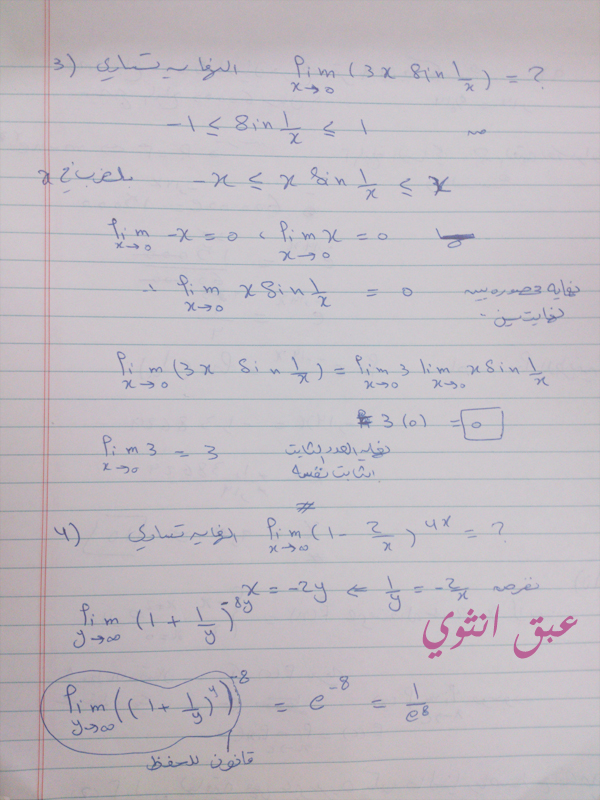 3) النهاية تساوي lim x→0 (3x sin 1/x) = ?
-1 ≤ sin 1/x ≤ 1
بالضرب في x -x ≤ x sin 1/x ≤ x
lim x→0 -x = 0 ، lim x→0 x = 0
∴ lim x→0 x sin 1/x = 0 نهاية محصورة بين
نهايتين
lim x→0 (3x sin 1/x) = lim x→0 3 lim x→0 x sin 1/x
3(0) = 0
lim x→0 3 = 3 نهاية العدد الثابت
الثابت نفسه
#
4) النهاية تساوي lim x→0 (1 - 2/x)^4x = ?
نفرض 1/y = -2/x ⇐ x = -2y
lim y→∞ (1 + 1/y)^-8y
عبق انثوي
lim y→∞ ((1 + 1/y)^y)^-8 = e^-8 = 1/e^8
قانون للحفظ